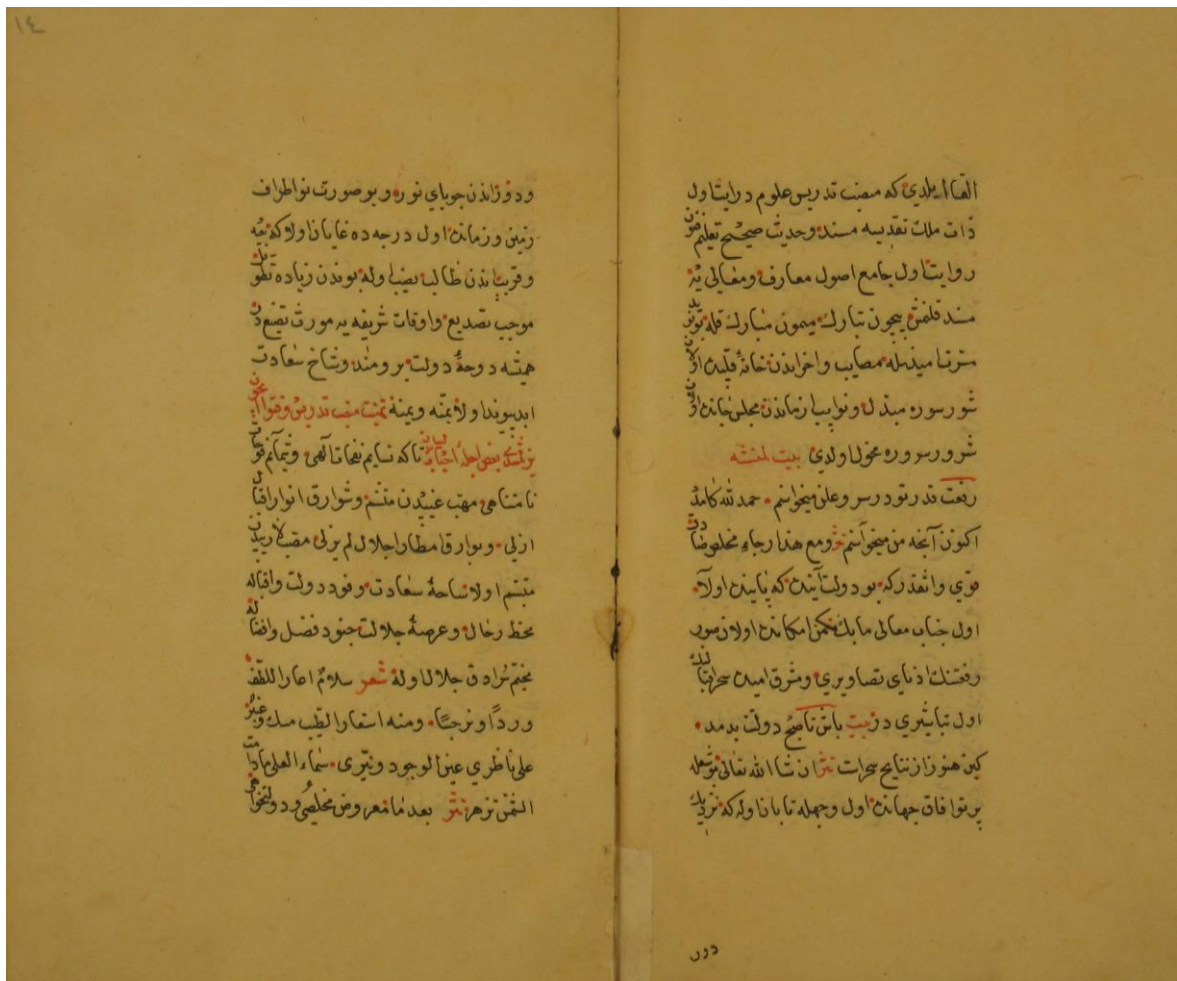 القا ایلدی که منصب تدریس علوم درایت اول
ذات ملک تقدیسه مسند وحدیث صحیح تعلیم فنون
روایت اول جامع اصول معارف ومعالی یه
مسند قلنمش بیچون تبارک میمون مبارک قله بونوید
مسرت امیدیله مصایب واحزاندن خانهٔ قلبیده اولان
شور سوره مبدل ونوایب زماندن مجلس جانده اولان
شرور سروره محول اولدی بیت لمنشئه
رفعت قدر تو در سر وعلن میخواستم حمد لله کامد
اکنون آنچه من میخواستم نثر ومع هذا رجاء مخلص صادق
قوی واثقدرکه بو دولت آینده که پاینده اولا
اول جناب معالی مابک ممکن امکانده اولان صور
رفعتنک ادنای تصاویری ومشرق امیده سحر اقبالک
اول تباشیری در بیت باش تا صبح دولتت بدمد
کین هنوز از نتایج سحرات نثر ان شا الله تعالی بو شعله
پرتو افاق جهانده اول وجهله تابان اوله که نزدیک
دورد
١٤
ودورادن جویای نوره وبو صورت نو اطراف
زمین وزمانده اول درجه ده نمایان اولا که
وقریب اندن طالب نصیب اوله بوندن زیاده تطویل
موجب تصدیع واوقات شریفه یه مورث تضییع در
همیشه دوحهٔ دولت برومند وشاخ سعادت
ابد پیوند اولا بمنه ویمنه تهنیت منصب تدریس وفتوی ایچون
بعض اجلهٔ احبابه تاکه نسایم نفحات الهی وتمایم فتوحات
نامتناهی مهب غیبیدن متنسم وشوارق انوار اقبال
ازلی وبوارق امطار اجلال لم یزلی مصب لاریبدن
متبسم اولا ساحهٔ سعادت وفود دولت واقباله
محط رحال وعرصهٔ جلالت جنود فضل وافضاله
مخیم سرادق جلال اوله شعر سلام اعار اللطف
وردا ونرجسا ومنه استعار الطیب مسک وعنبر
على ناظری عین الوجود ونیری سماء العلى مادامت
الشمس تزهر نثر بعد ما معروض مخلصی ودولتخواهی